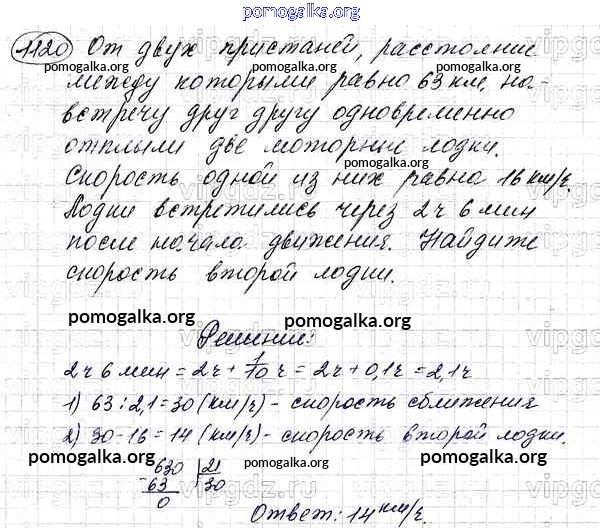 pomogalka.org
1120 От двух пристаней, расстояние
pomogalka.org pomogalka.org pomogalka.org
между которыми равно 63 км, на-
встречу друг другу одновременно
отплыли две моторные лодки.
pomogalka.org
Скорость одной из них равна 16 км/ч.
Лодки встретились через 2 ч 6 мин
pomogalka.org pomogalka.org
после начала движения. Найдите
скорость второй лодки.
pomogalka.org pomogalka.org
Решение:
2 ч 6 мин = 2ч + 1/10 ч = 2ч + 0,1ч = 2,1ч
1) 63 : 2,1 = 30 (км/ч) - скорость сближения
2) 30 - 16 = 14 (км/ч) - скорость второй лодки.
pomogalka.org pomogalka.org pomogalka.org
630 21
-63 30
0
Ответ: 14 км/ч